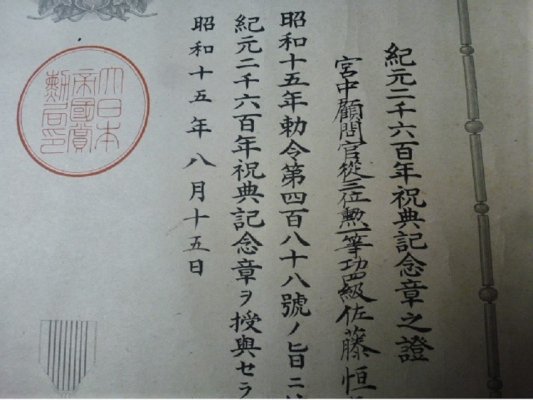 紀元二千六百年祝典記念章之證
宮中顧問官從三位勲一等功四級佐藤恒
昭和十五年勅令第四百八十八號ノ旨ニ
紀元二千六百年祝典記念章ヲ授與セラ
昭和十五年八月十五日
大日本
帝國賞
勲局印